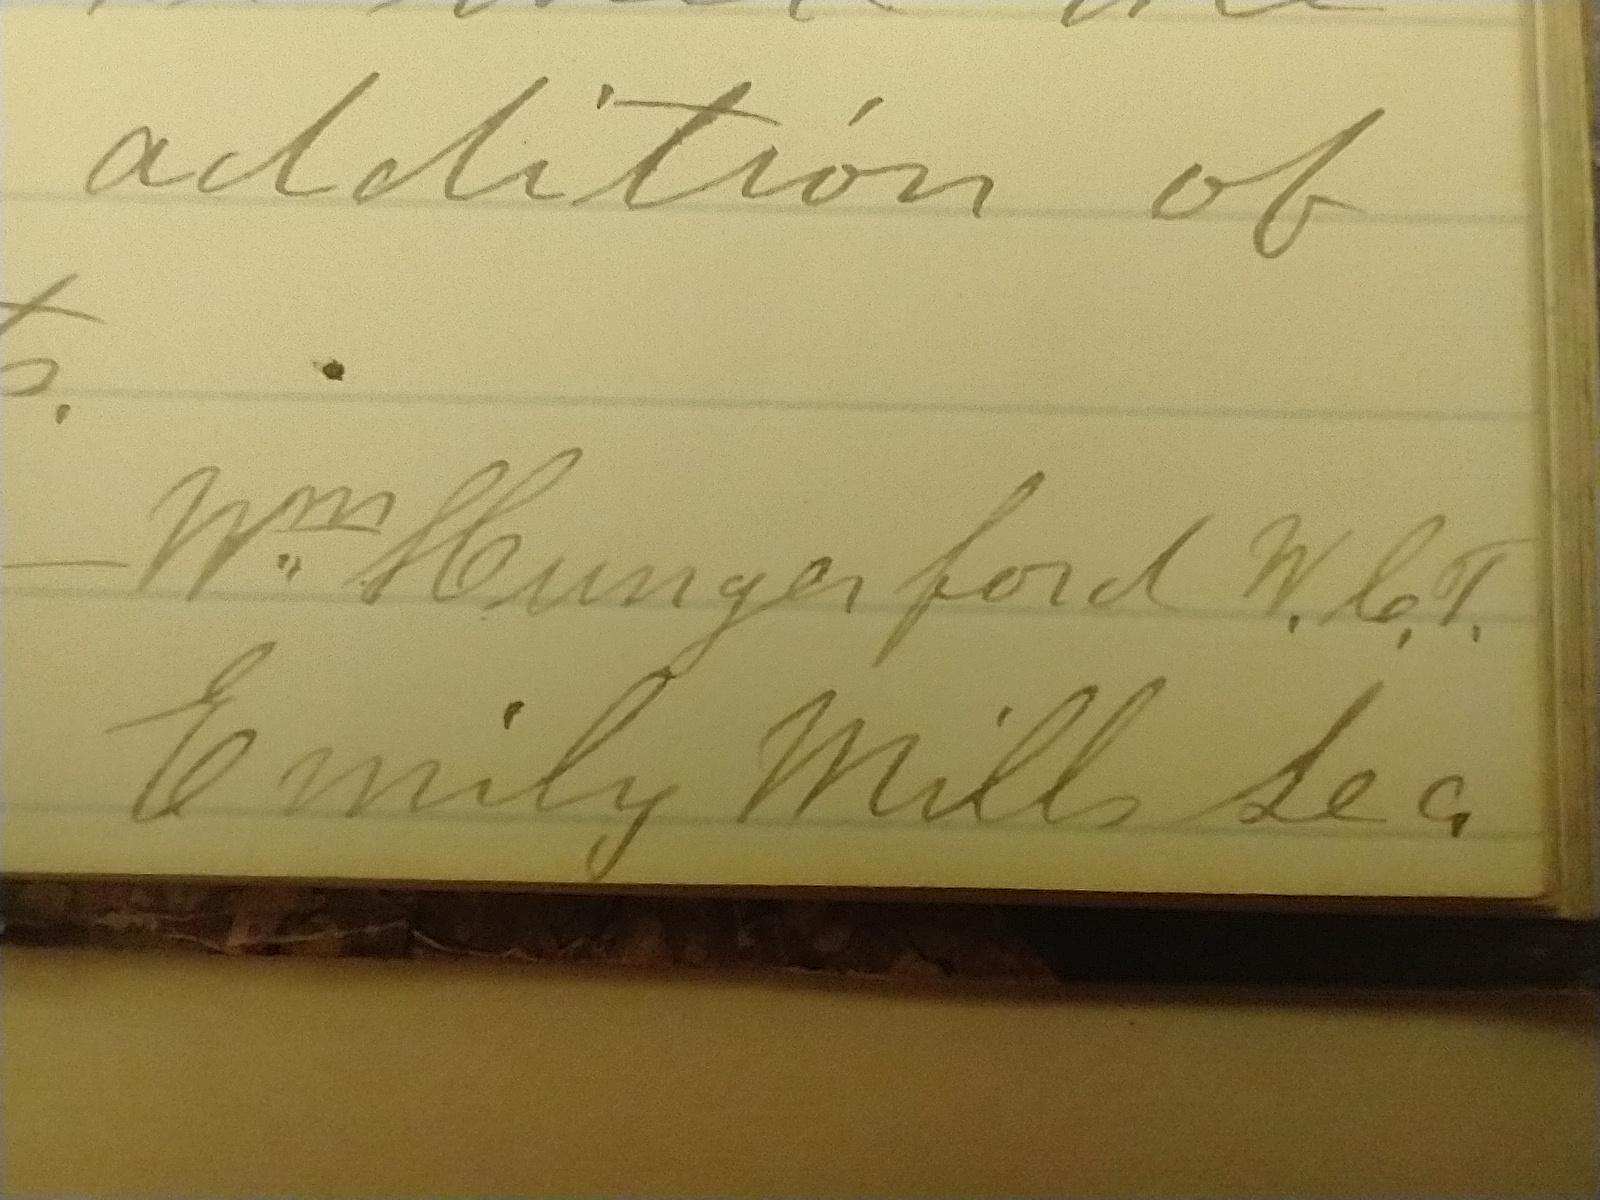 addition of
ts.
— Wm. Hungerford W.C.T.
Emily Mills Sec.